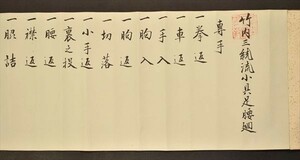 竹内三統流小具足腰廻
専手
一拳返
一車返
一入手
一胸入
一胸返
一切落
一小手返
一裏之投
一腰返
一襟返
一眼詰